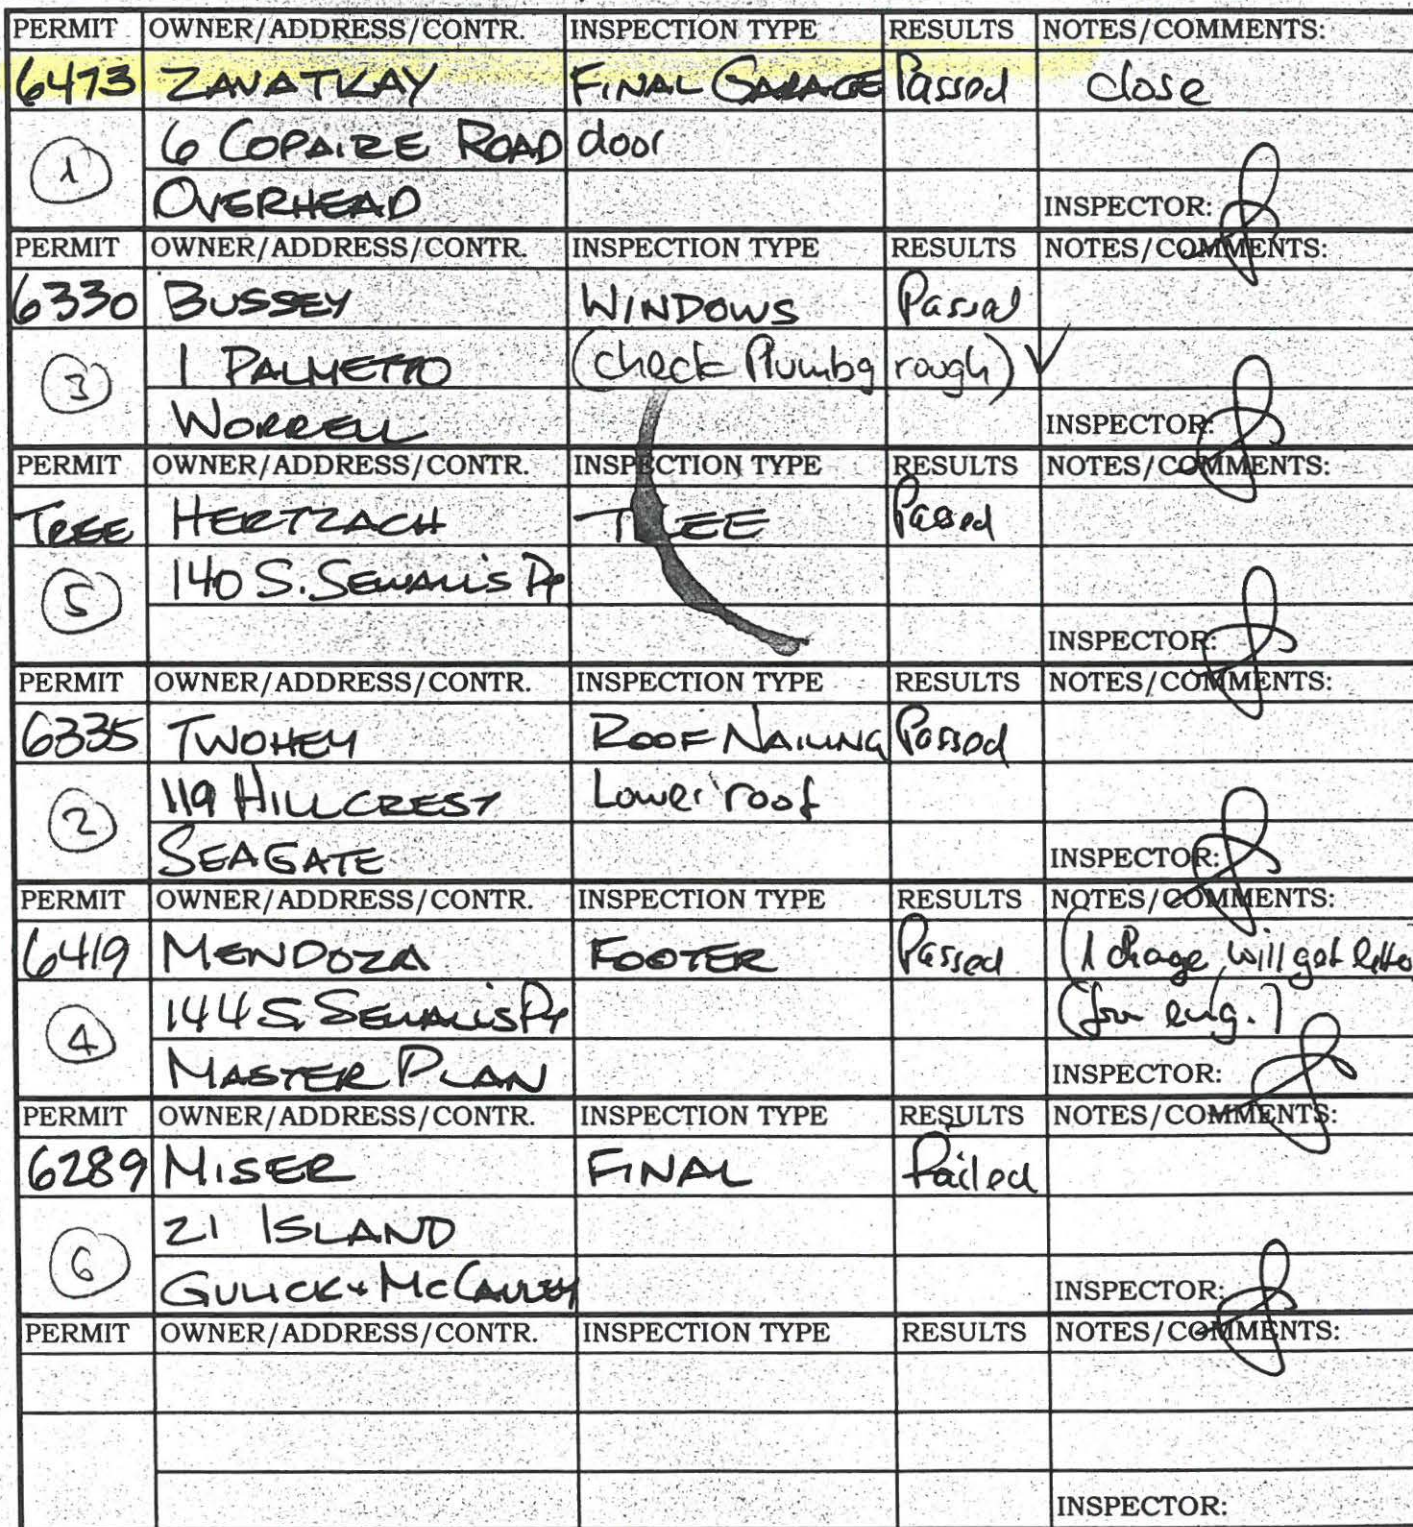 PERMIT OWNER/ADDRESS/CONTR. INSPECTION TYPE RESULTS NOTES/COMMENTS:
6473 ZAVATKAY FINAL GARAGE Passed close
1 6 COPAIRE ROAD door
OVERHEAD INSPECTOR:
PERMIT OWNER/ADDRESS/CONTR. INSPECTION TYPE RESULTS NOTES/COMMENTS:
6330 BUSSEY WINDOWS Passed
3 1 PALMETTO (check Plumbg rough) ✓
WORRELL INSPECTOR:
PERMIT OWNER/ADDRESS/CONTR. INSPECTION TYPE RESULTS NOTES/COMMENTS:
TREE HERTZACH TREE Passed
5 140 S. SEWALL'S PT
INSPECTOR:
PERMIT OWNER/ADDRESS/CONTR. INSPECTION TYPE RESULTS NOTES/COMMENTS:
6335 TWOHEY ROOF NAILING Passed
2 119 HILLCREST Lower roof
SEAGATE INSPECTOR:
PERMIT OWNER/ADDRESS/CONTR. INSPECTION TYPE RESULTS NOTES/COMMENTS:
6419 MENDOZA FOOTER Passed (1 change, will get letter
4 144 S. SEWALL'S PT (from eng.)
MASTER PLAN INSPECTOR:
PERMIT OWNER/ADDRESS/CONTR. INSPECTION TYPE RESULTS NOTES/COMMENTS:
6289 MISER FINAL Failed
6 21 ISLAND
GULICK + McCAULEY INSPECTOR:
PERMIT OWNER/ADDRESS/CONTR. INSPECTION TYPE RESULTS NOTES/COMMENTS:
INSPECTOR: